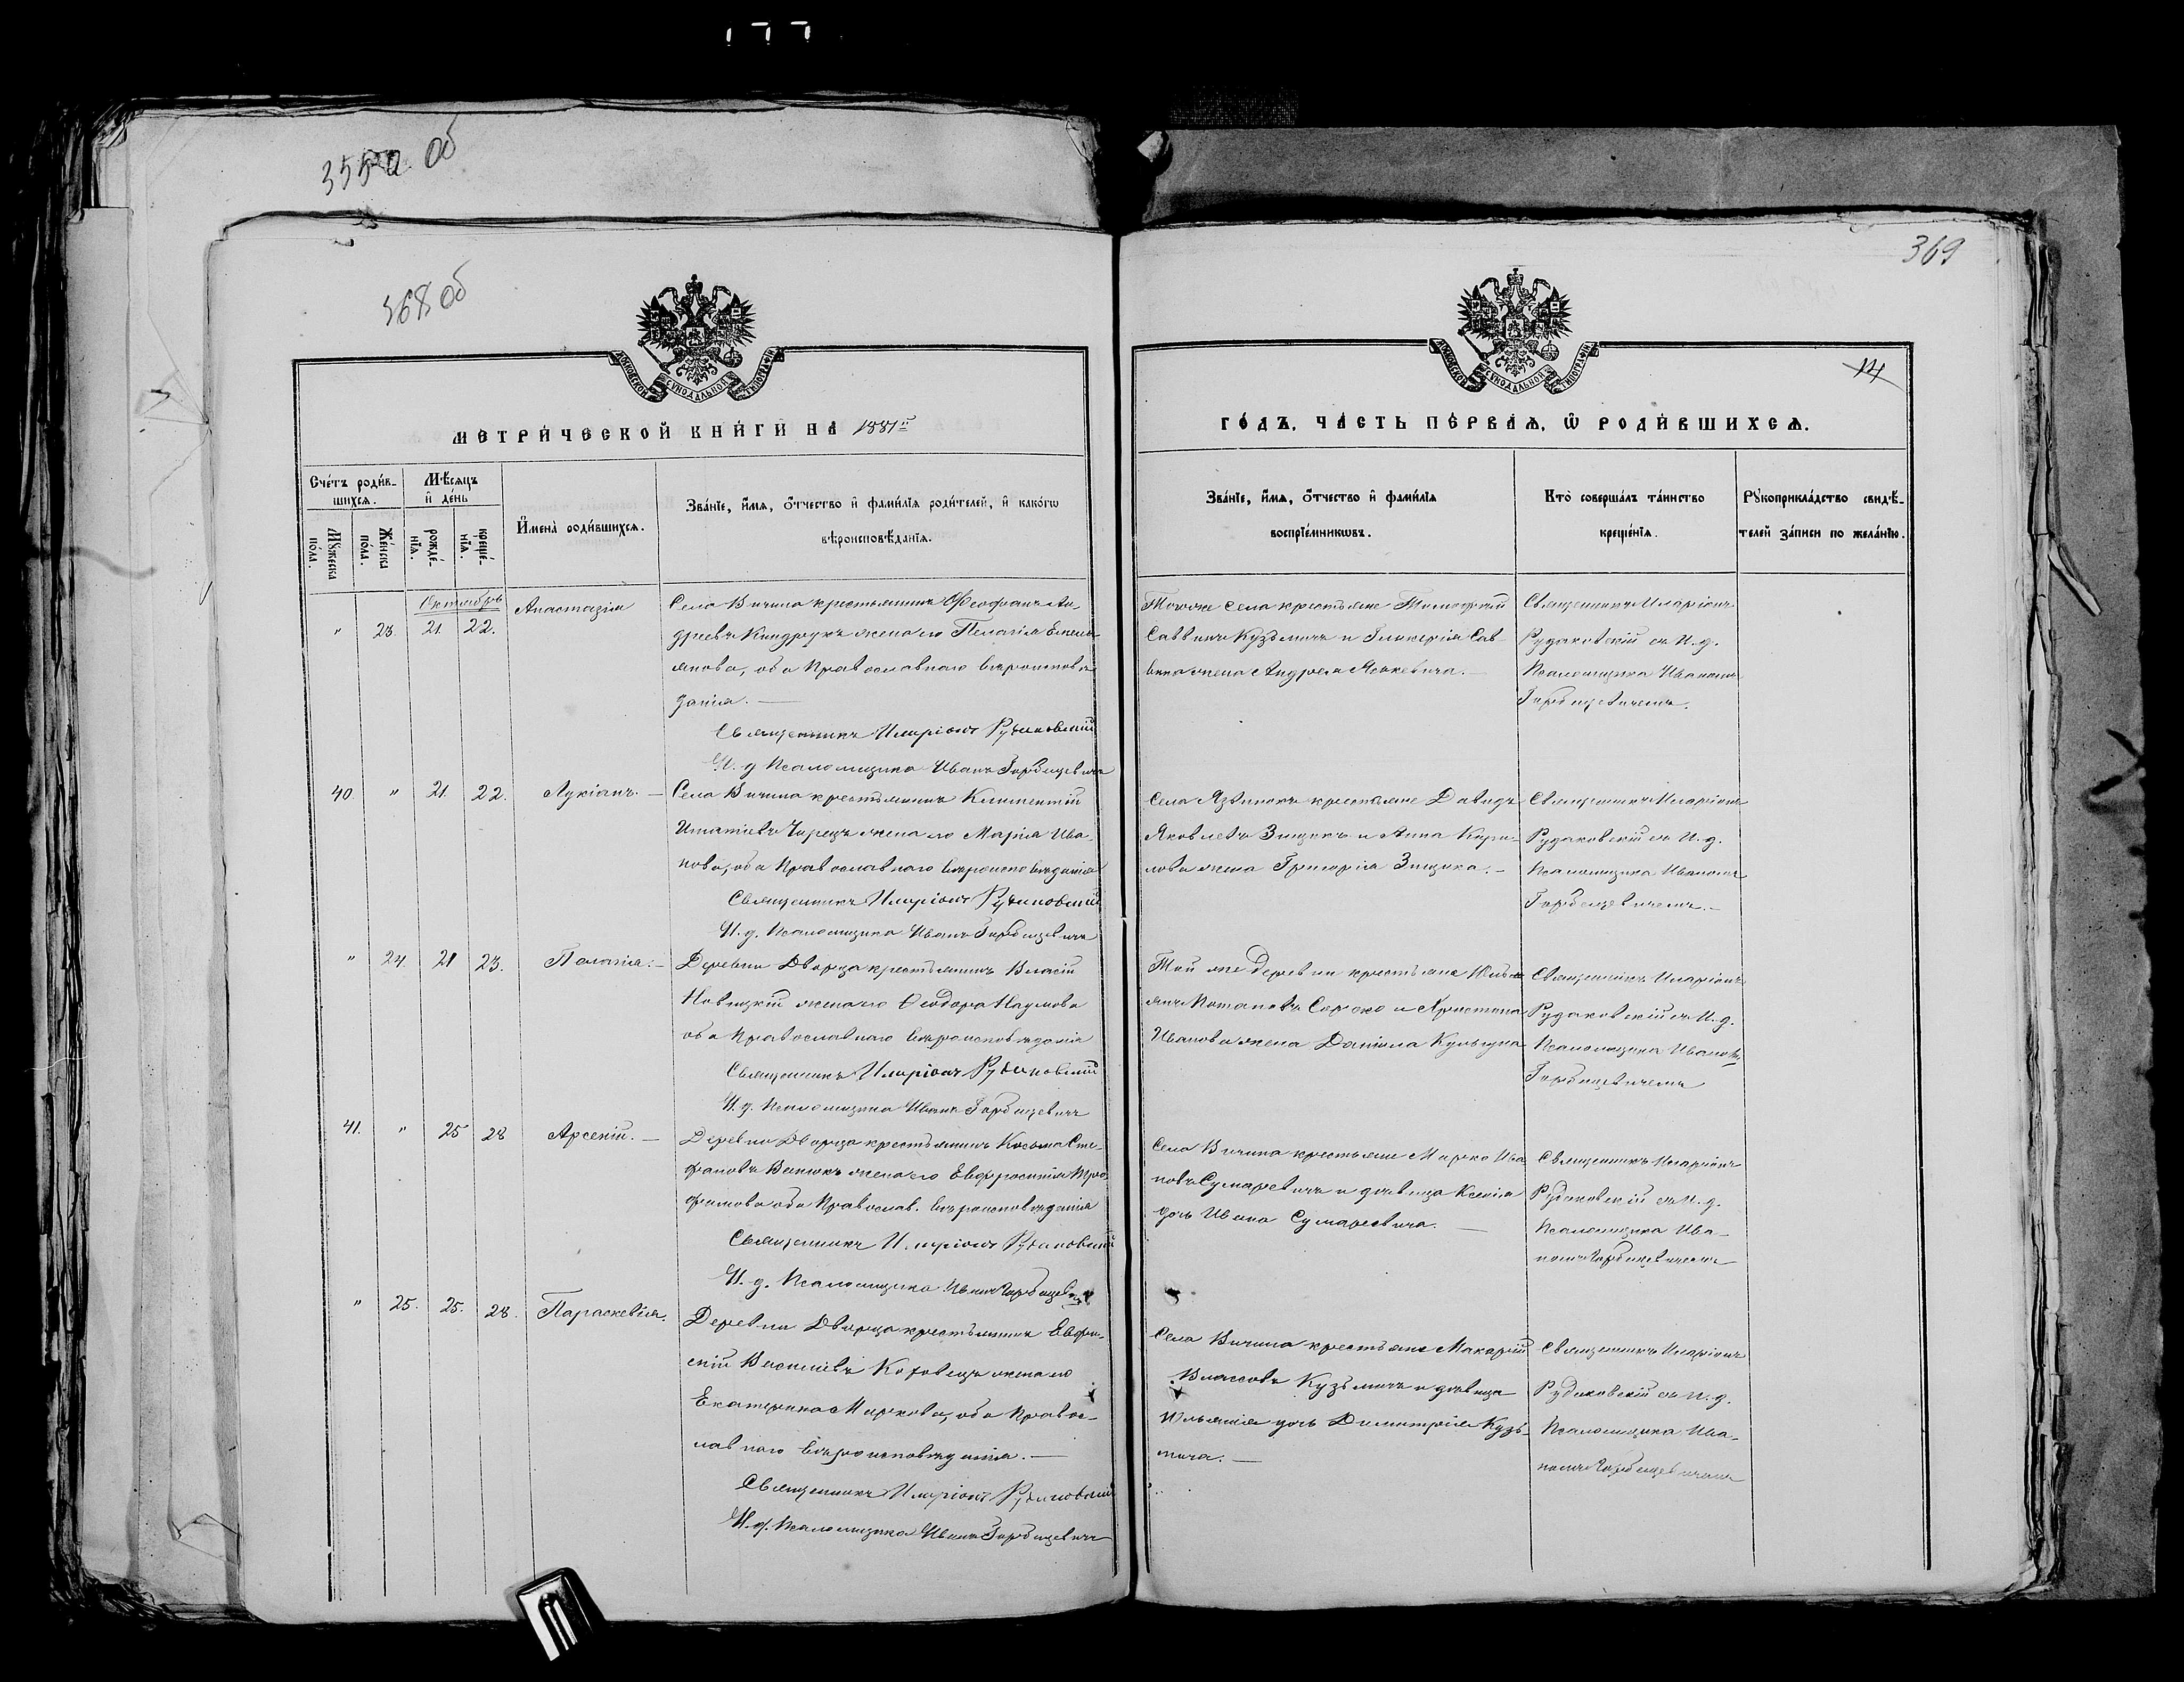 177
355 об
368 об
369
14
МОСКОВСКОЙ СѴНОДАЛЬНОЙ ТИПОГРАФІИ
МОСКОВСКОЙ СѴНОДАЛЬНОЙ ТИПОГРАФІИ
МЕТРИ́ЧЕСКОЙ КНИ́ГИ НА 1881й
ГО́ДЪ, ЧА́СТЬ ПЕ́РВАѦ, Ѿ РОДИ́ВШИХСѦ.
Сче́тъ роди́в-
шихсѧ.
Мѣ́сѧцъ
и҆ де́нь
Мꙋ́жеска по́ла.
Же́нска по́ла.
рожде́-нїѧ.
креще́-нїѧ.
И҆мена̀ роди́вшихсѧ.
Зва́нїе, и҆́мѧ, ѻ҆́тчество и҆ фами́лїѧ роди́телей, и҆ како́гѡ
вѣроисповѣ́данїѧ.
Зва́нїе, и҆́мѧ, ѻ҆́тчество и҆ фами́лїѧ
воспрїе́мникѡвъ.
Кто̀ соверша́лъ та́инство
креще́нїѧ.
Рꙋкоприкла́дство свидѣ́-
телей за́писи по жела́нїю.
Октябрь
" 23. 21. 22. Анастазія
Села Вичина крестьянинъ Ѳеофанъ Ан-
дреевъ Киндрукъ жена его Пелагія Емель-
янова, оба Православнаго вѣроисповѣ-
данія. —
Священникъ Иларіонъ Рудаковскій
И. д. Псаломщика Иванъ Горбацевичъ
Тогоже села крестьяне Тимофей
Саввинъ Кузьмичъ и Гликерія Сав-
вина жена Андрея Яскевича. —
Священникъ Иларіонъ
Рудаковскій съ И. д.
Псаломщика Иваномъ
Горбацевичемъ.
40. " 21. 22. Лукіанъ. —
Села Вичина крестьянинъ Климентій
Игнатіевъ жена его Марія Ива-
нова, оба Православнаго вѣроисповѣданія
Священникъ Иларіонъ Рудаковскій
И. д. Псаломщика Иванъ Горбацевичъ
Села Язвинокъ крестьяне Давидъ
Яковлевъ Зищикъ и Анна Кири-
лова жена Григорія Зищика. —
Священникъ Иларіонъ
Рудаковскій съ И. д.
Псаломщика Иваномъ
Горбацевичемъ. —
" 24. 21 23. Пелагія. —
Деревни Дворца крестьянинъ Власій
Новицкій жена его Ѳеодора Наумова
оба Православнаго вѣроисповѣданія
Священникъ Иларіонъ Рудаковскій
И. д. Псаломщика Иванъ Горбацевичъ
Той же деревни крестьяне Юльи-
янъ Потаповъ и Христина
Иванова жена Даніила
Священникъ Иларіонъ
Рудаковскій съ И. д.
Псаломщика Иваномъ
Горбацевичемъ
41. " 25 28 Арсеній. —
Деревни Дворца крестьянинъ Косьма Сте-
фановъ жена его Евфросинія Тро-
фимова оба Православ. вѣроисповѣданія
Священникъ Иларіонъ Рудаковскій
И. д. Псаломщика Иванъ Горбацевичъ
Села Вичина крестьяне Марко Ива-
новъ Сумаревичъ и дѣвица Ксенія
дочь Ивана Сумаревича. —
Священникъ Иларіонъ
Рудаковскій съ И. д.
Псаломщика Ива-
номъ Горбацевичемъ
" 25. 25. 28. Параскевія.
Деревни Дворца крестьянинъ Евфи-
мій Василіевъ Коховецъ жена его
Екатерина Маркова, оба Правос-
лавнаго вѣроисповѣданія. —
Священникъ Иларіонъ Рудаковскій
И. д. Псаломщика Иванъ Горбацевичъ
Села Вичина крестьяне Макарій
Власовъ Кузьмичъ и дѣвица
Юльянія дочь Димитрія Кузь-
мича. —
Священникъ Иларіонъ
Рудаковскій съ И. д.
Псаломщика Ива-
номъ Горбацевичемъ